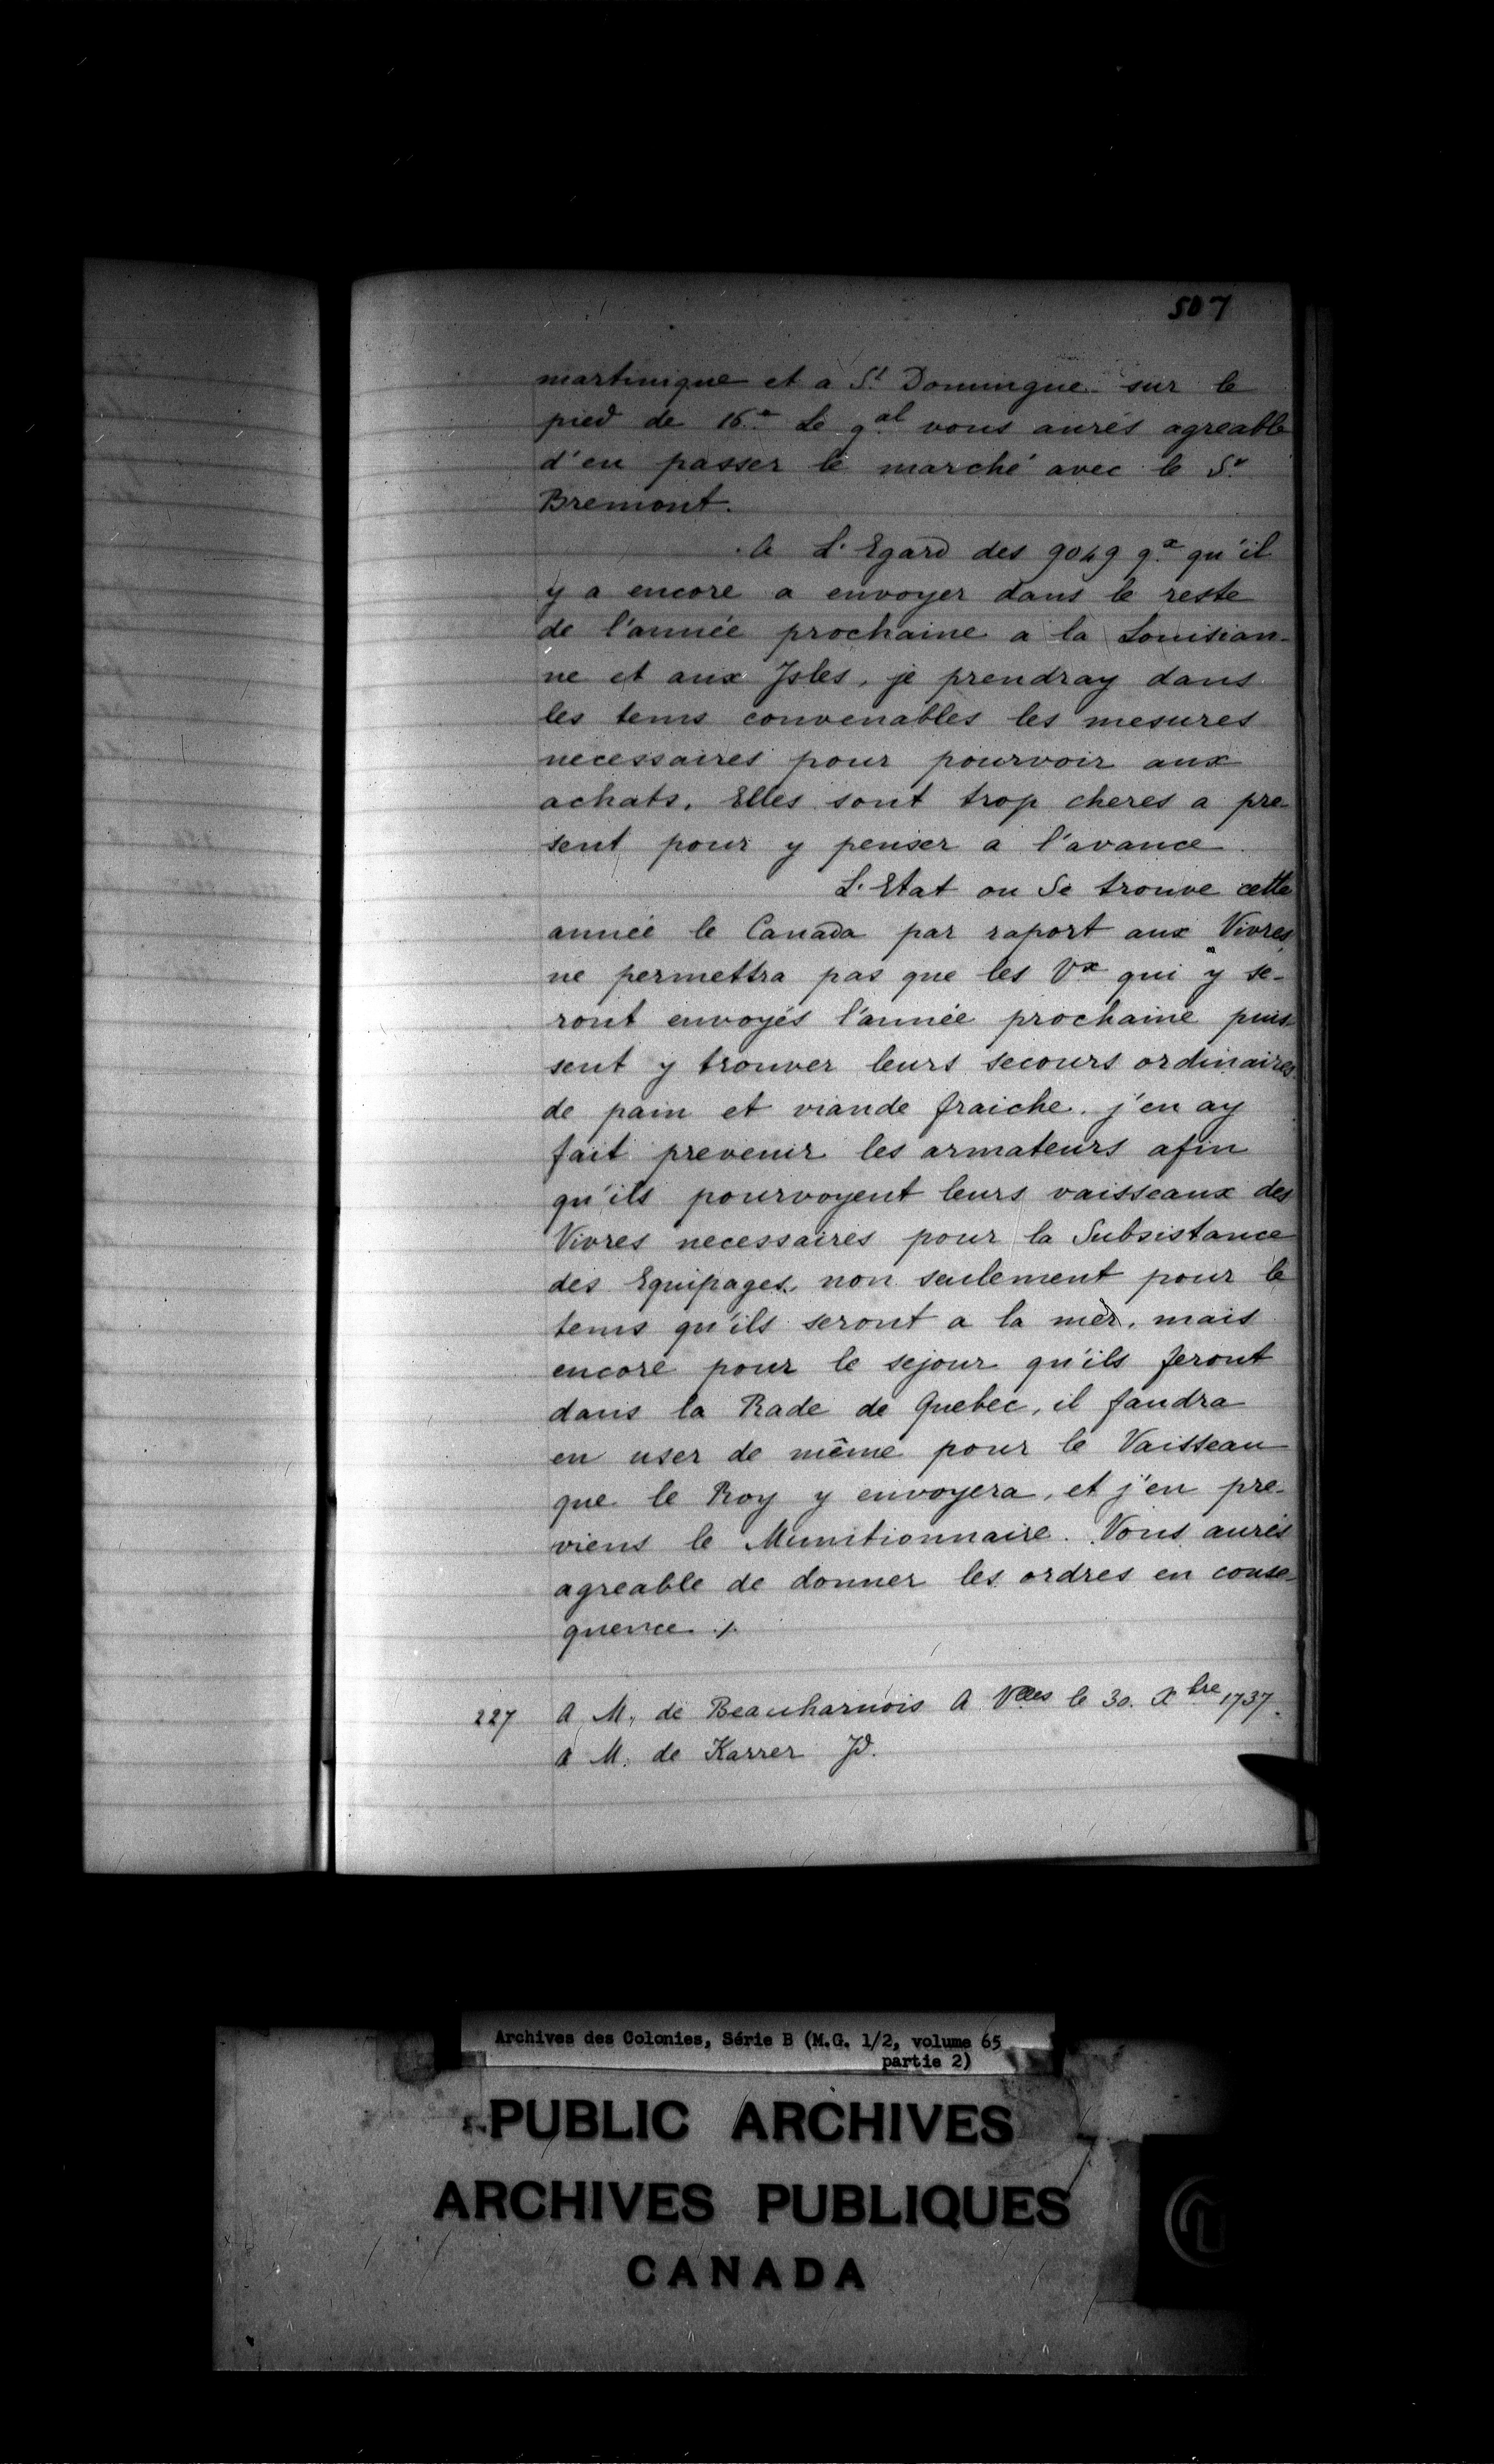 507
martinique et a St Domingue sur le
pied de 16.# Le qal vous aurés agreable
d'en passer le marché avec le Sr
Bremont.
A L'Egard des 9049 qx qu'il
y a encore a envoyer dans le reste
de l'année prochaine a la Louisian-
ne et aux Isles, je prendray dans
les tems convenables les mesures
necessaires pour pourvoir aux
achats. Elles sont trop cheres a pre-
sent pour y penser a l'avance
L'Etat ou Se trouve cette
année le Canada par raport aux Vivres
ne permettra pas que les Vx qui y se-
ront envoyés l'année prochaine puis-
sent y trouver leurs secours ordinaires
de pain et viande fraiche. j'en ay
fait prevenir les armateurs afin
qu'ils pourvoyent leurs vaisseaux des
Vivres necessaires pour la Subsistance
des Equipages, non seulement pour le
tems qu'ils seront a la mer, mais
encore pour le sejour qu'ils feront
dans la Rade de Quebec, il faudra
en user de même pour le Vaisseau
que le Roy y envoyera, et j'en pre-
viens le Munitionnaire. Vous aurés
agreable de donner les ordres en conse-
quence ./.
227 A M. de Beauharnois A Vlles le 30. Xbre 1737.
a M. de Karrer Jd.
Archives des Colonies, Série B (M.G. 1/2, volume 65
partie 2)
PUBLIC ARCHIVES
ARCHIVES PUBLIQUES
CANADA